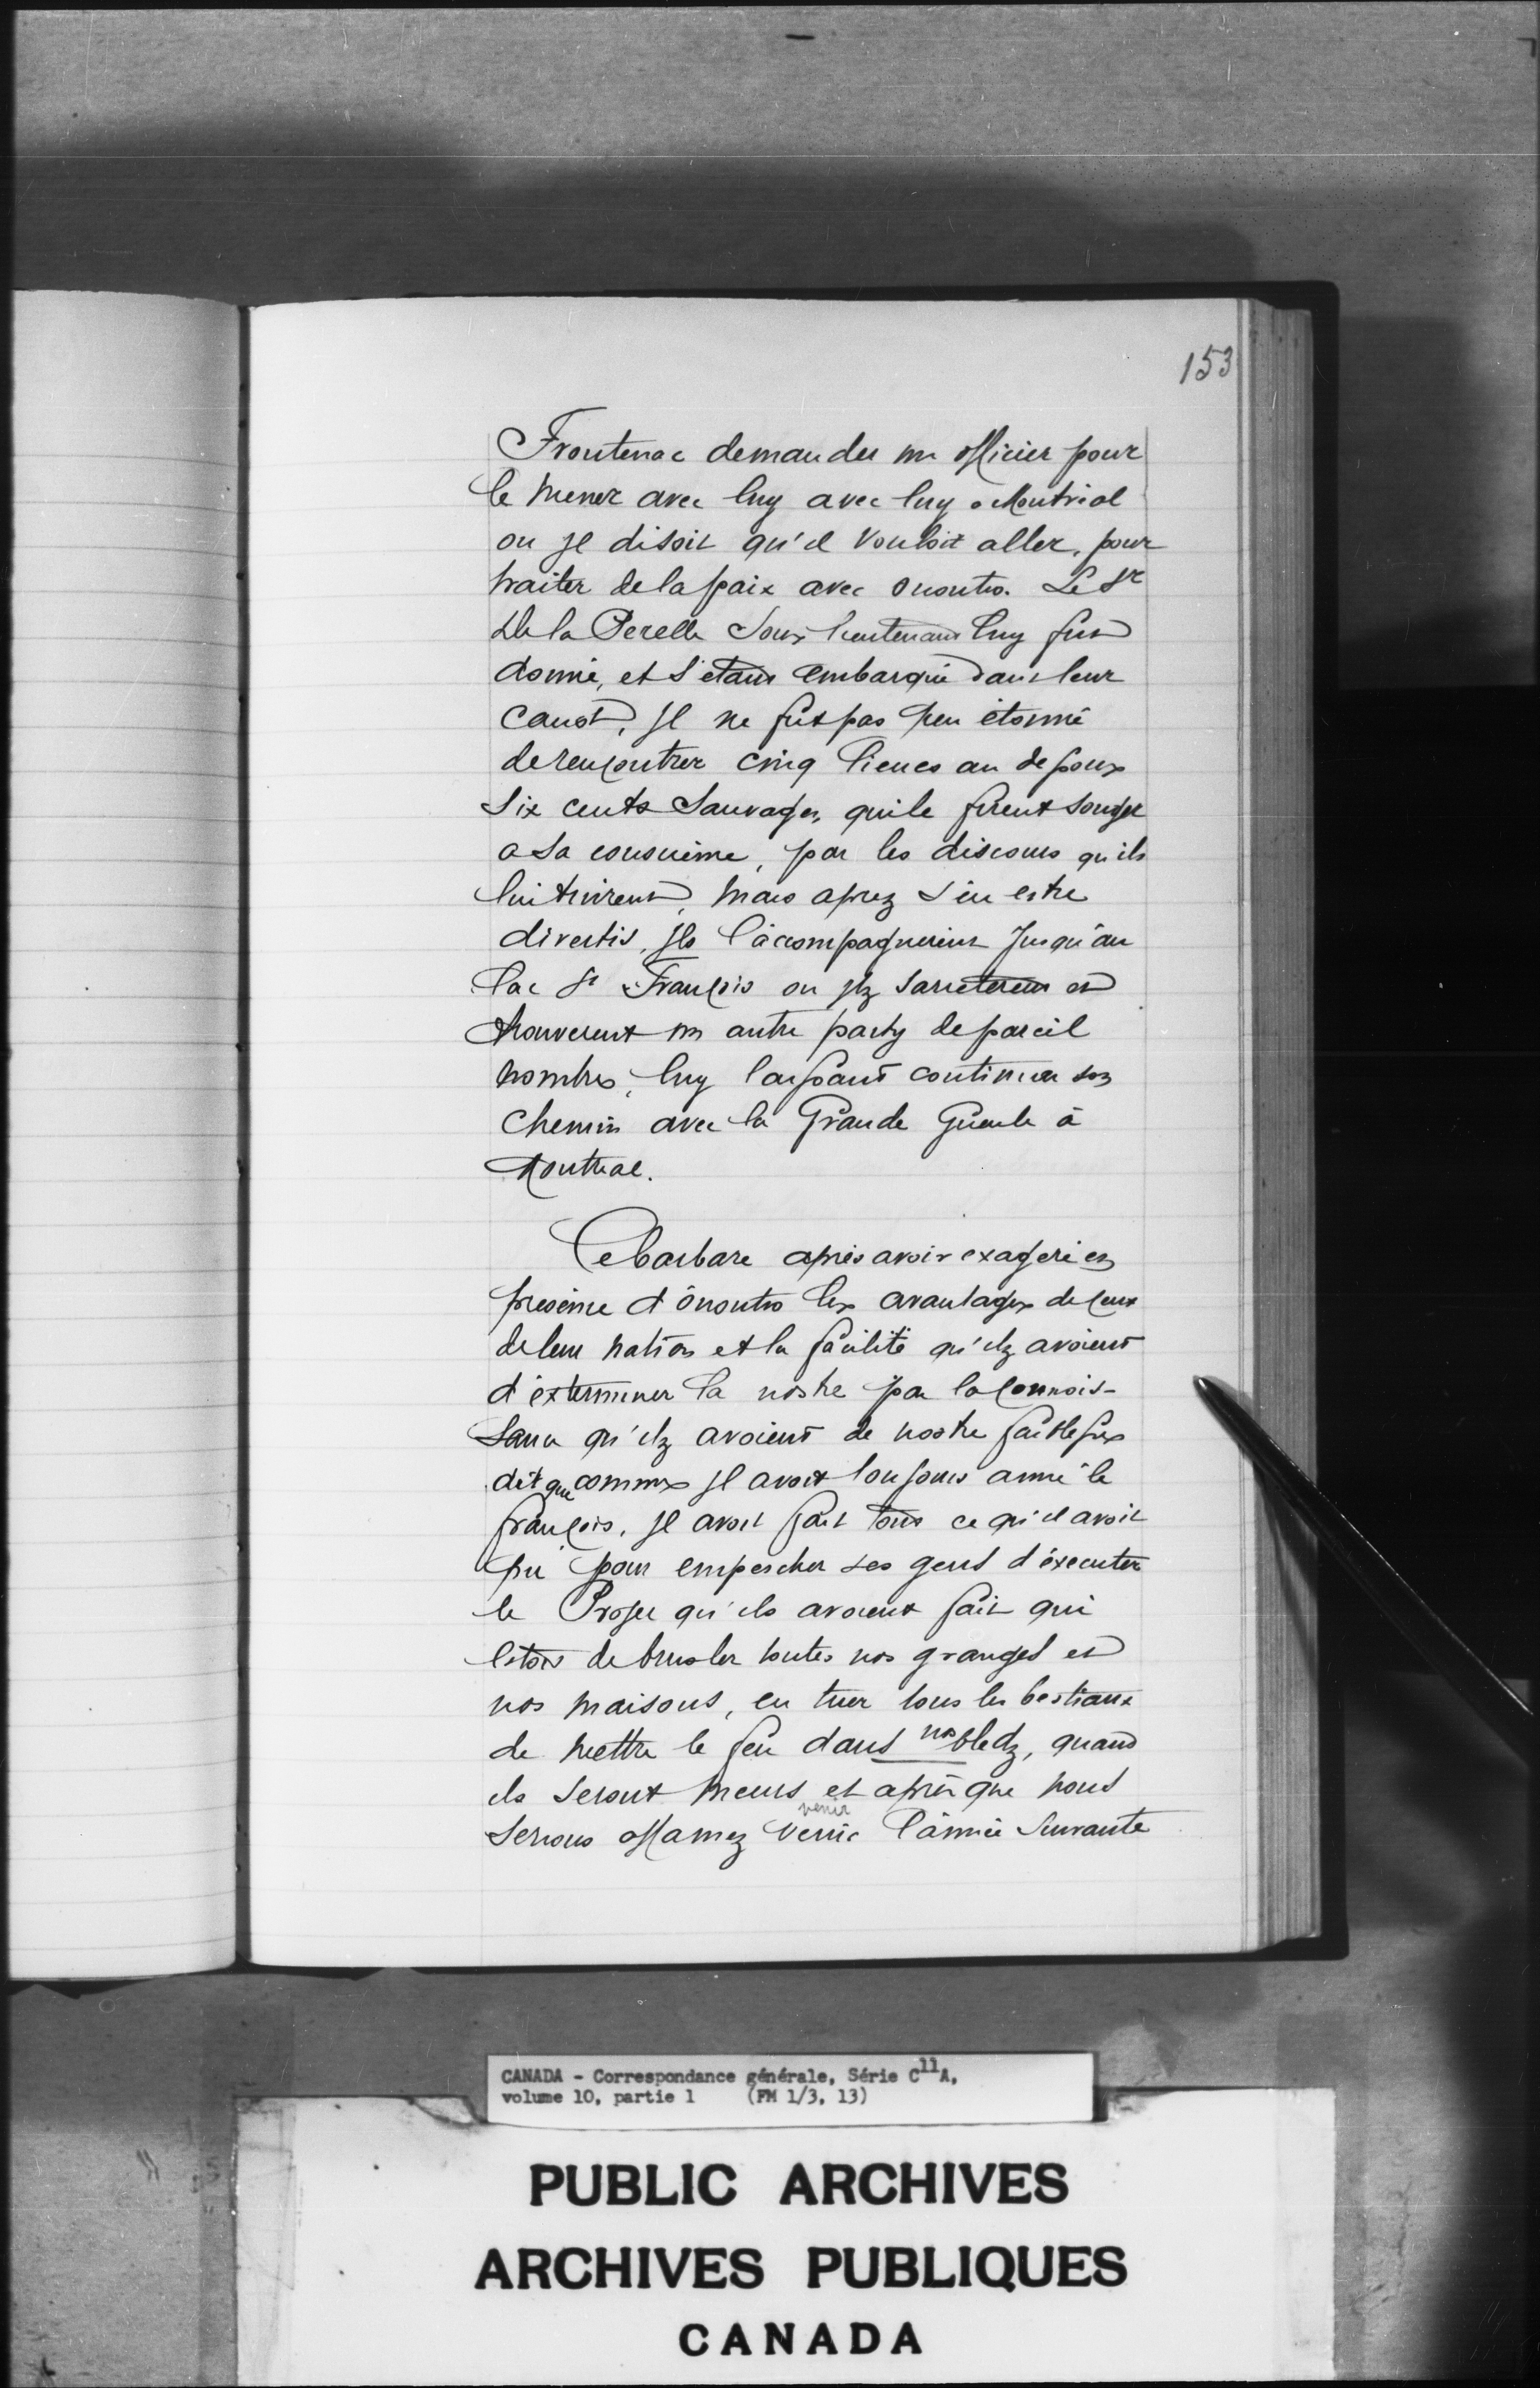 153
Frontenac demander un officier pour
le mener avec luy avec luy a Montrial
ou Il disoit qu'il vouloit aller, pour
traiter de la paix avec Onontio. Le Sr
De la Perelle Sous lieutenant luy fut
donné, et s'étant embarqué dans leur
canot, Il ne fut pas peu étonné
de rencontrer cinq lieues au de soux
Six cents Sauvages, qui le firent songer
a sa consciene, par les discours qu'ils
lui tinrent, mais aprez s'en estre
divertis, Ils l'accompagnerent Jusqu'au
lac St François ou Ilz sarreterent et
trouverent un autre party de pareil
nombre, luy laissant continuer son
chemin avec la Grande Gueule à
Montreal.
Ce barbare après avoir exageré en
presence d'Onontio les avantages de ceux
de leur nation et la facilité qu'ilz avoient
d'exterminer la nostre par la connois-
sance qu'ilz avoient de nostre faiblesse
dit que comme Il avoit toujours aimé le
françois, Il avoit fait tout ce qu'il avoit
pu pour empescher ses gens d'éxecuter
le Projet qu'ils avoient fait qui
estoit de brusler toutes nos granges et
nos maisons, en tuer tous les bestiaux
de mettre le feu dans nos bledz, quand
ils seront meurs et après que nous
serions affamez venir venir l'année suivante
CANADA - Correspondance générale, Série C11A,
volume 10, partie 1 (FM 1/3, 13)
PUBLIC ARCHIVES
ARCHIVES PUBLIQUES
CANADA